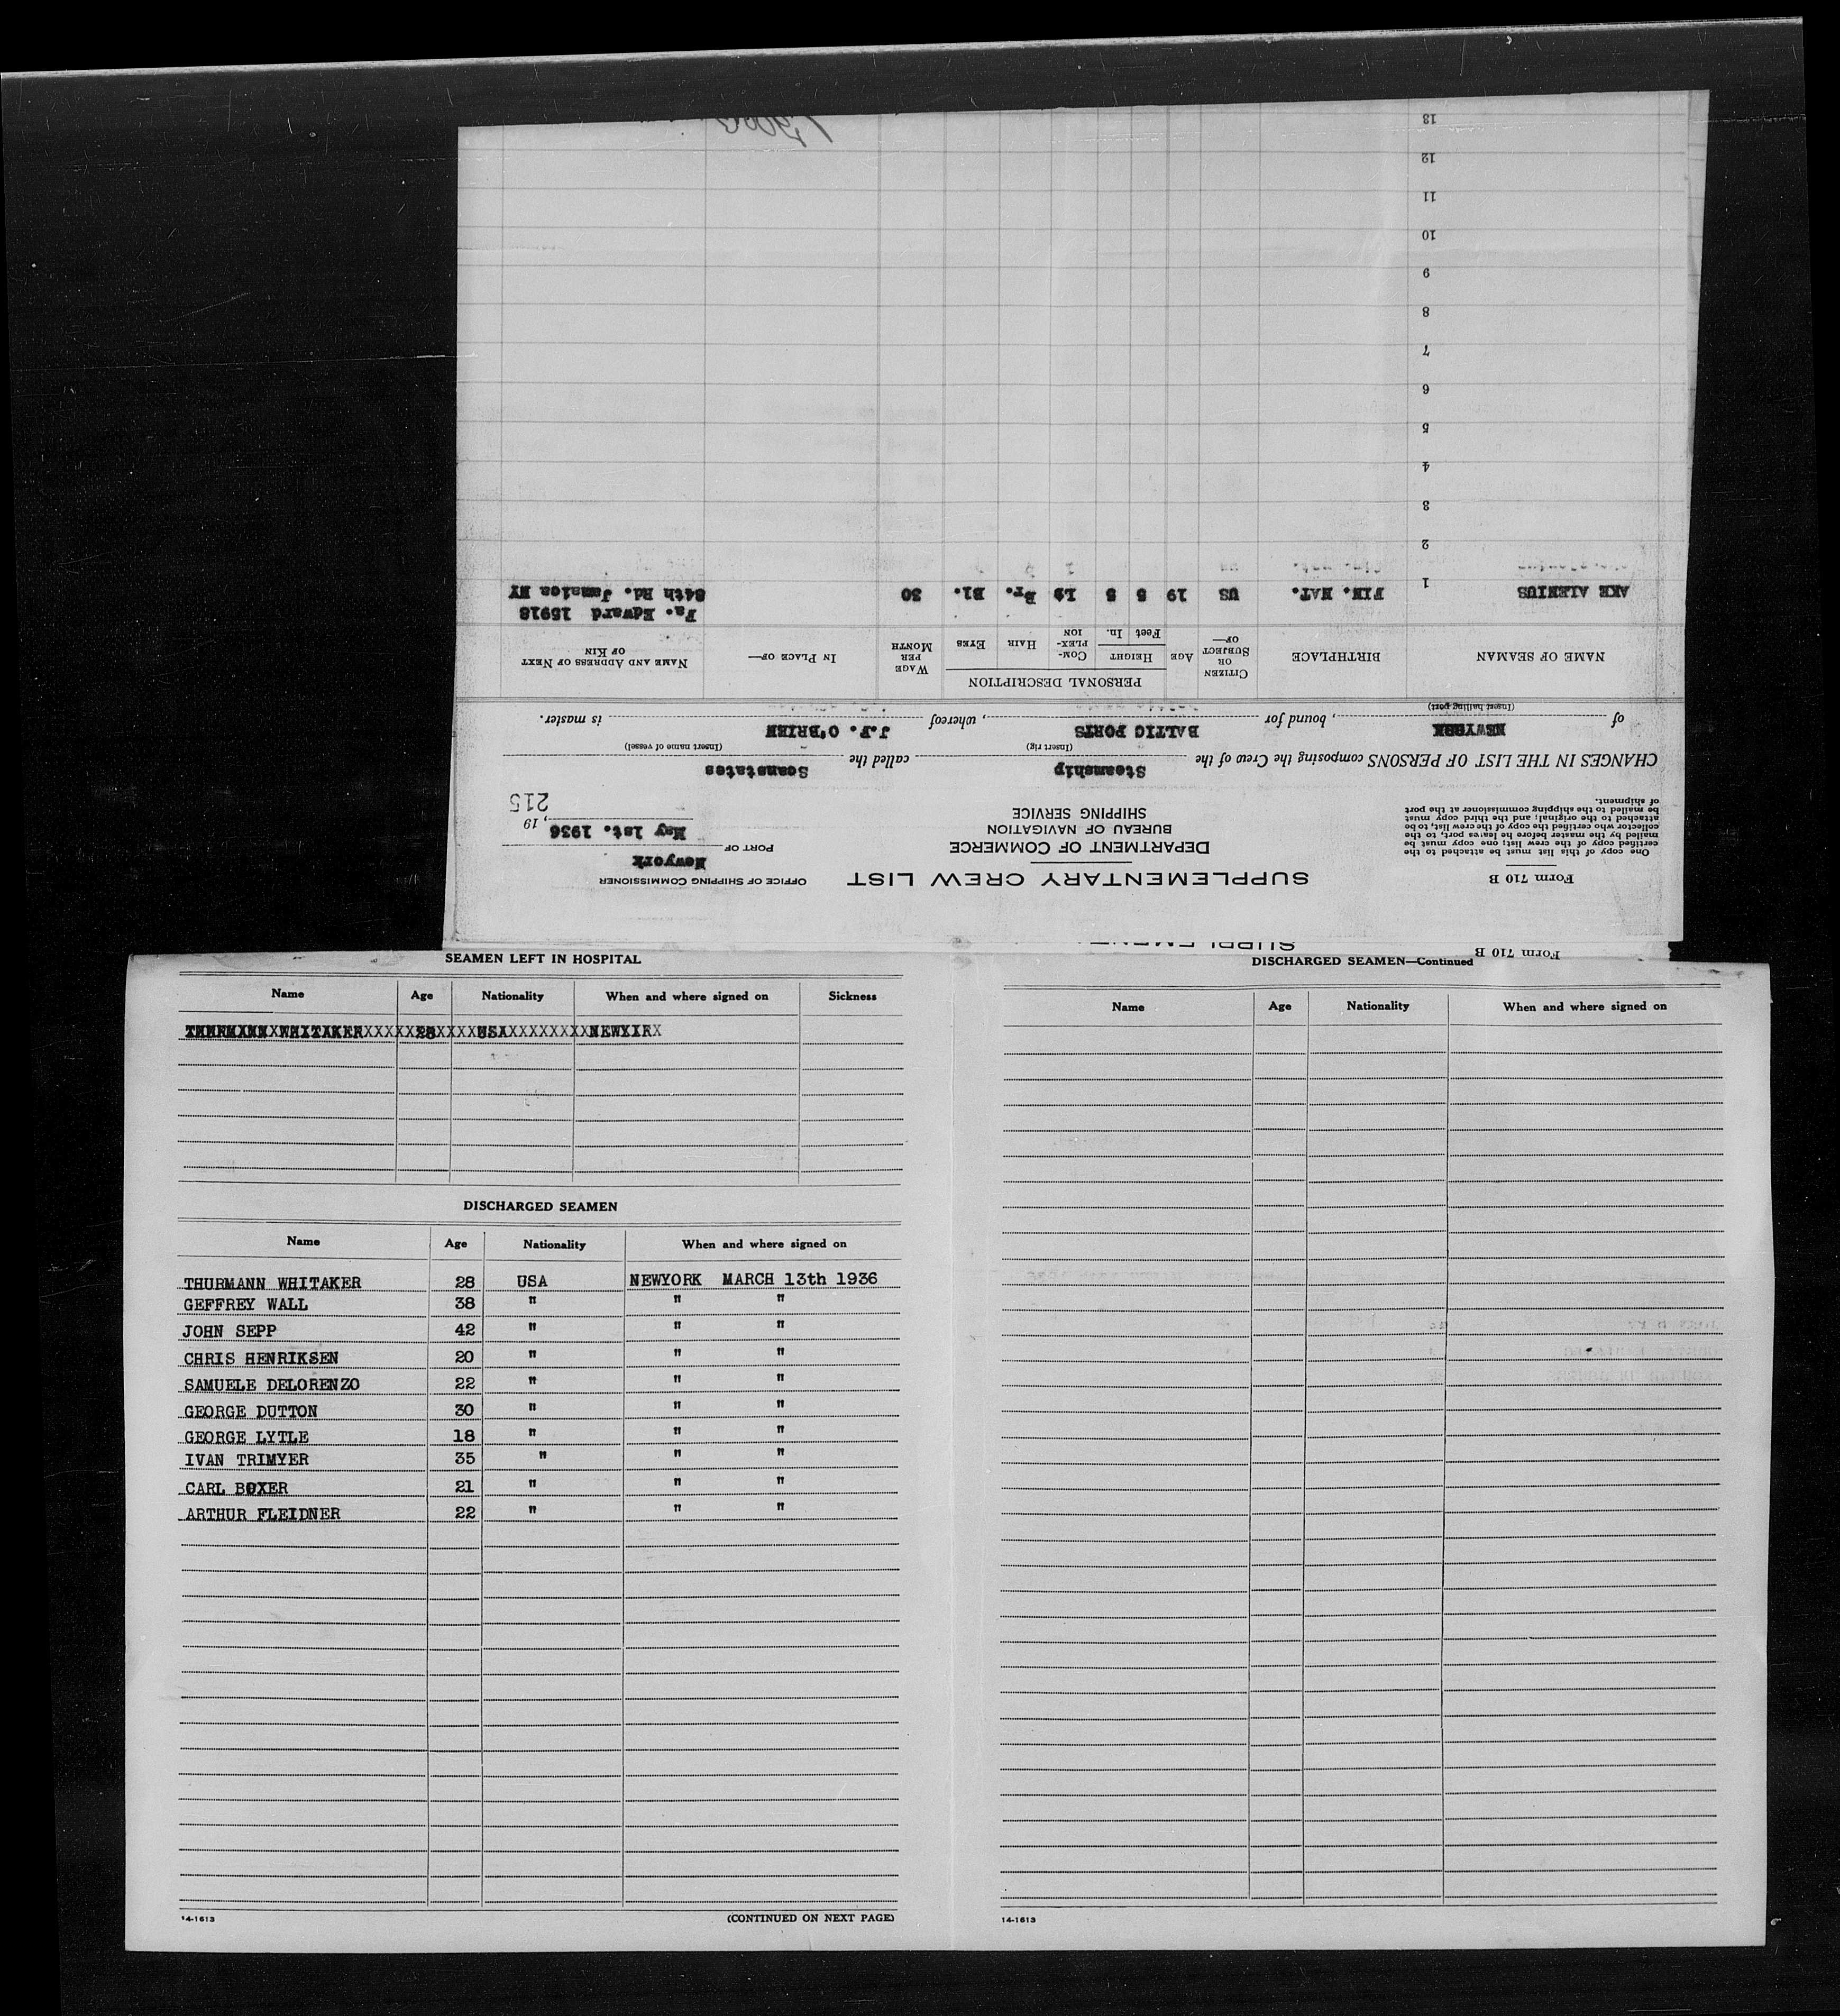 Form 710 B
One copy of this list must be attached to the
certified copy of the crew list; one copy must be
mailed by the master before he leaves port, to the
collector who certified the copy of the crew list, to be
attached to the original; and the third copy must
be mailed to the shipping commissioner at the port
of shipment.
SUPPLEMENTARY CREW LIST
DEPARTMENT OF COMMERCE
BUREAU OF NAVIGATION
SHIPPING SERVICE
OFFICE OF SHIPPING COMMISSIONER
Newyork
PORT OF
May 1st. 1936, 19
215
CHANGES IN THE LIST OF PERSONS composing the Crew of the Steamship called the Scanstates
(Insert rig) (Insert name of vessel)
of NEWYORK, bound for BALTIC PORTS, whereof J.F. O'BRIEN is master.
(Insert hailing port)
NAME OF SEAMAN BIRTHPLACE CITIZEN OR SUBJECT OF— AGE PERSONAL DESCRIPTION HEIGHT Feet In. COM-PLEX-ION HAIR EYES WAGE PER MONTH IN PLACE OF— NAME AND ADDRESS OF NEXT OF KIN
Fa. Edward 15918
AKE ALENIUS 1 FIN. NAT. US 19 5 8 Br. Bl. 30 84th Rd. Jamaica NY
2
3
4
5
6
7
8
9
10
11
12
13
Form 710 B
SEAMEN LEFT IN HOSPITAL
Name Age Nationality When and where signed on Sickness
THURMANN WHITAKER 28 USA NEWYIRK
DISCHARGED SEAMEN
Name Age Nationality When and where signed on
THURMANN WHITAKER 28 USA NEWYORK MARCH 13th 1936
GEFFREY WALL 38 " " "
JOHN SEPP 42 " " "
CHRIS HENRIKSEN 20 " " "
SAMUELE DELORENZO 22 " " "
GEORGE DUTTON 30 " " "
GEORGE LYTLE 18 " " "
IVAN TRIMYER 35 " " "
CARL BOXER 21 " " "
ARTHUR FLEIDNER 22 " " "
14-1613
(CONTINUED ON NEXT PAGE)
DISCHARGED SEAMEN—Continued
Name Age Nationality When and where signed on
14-1613